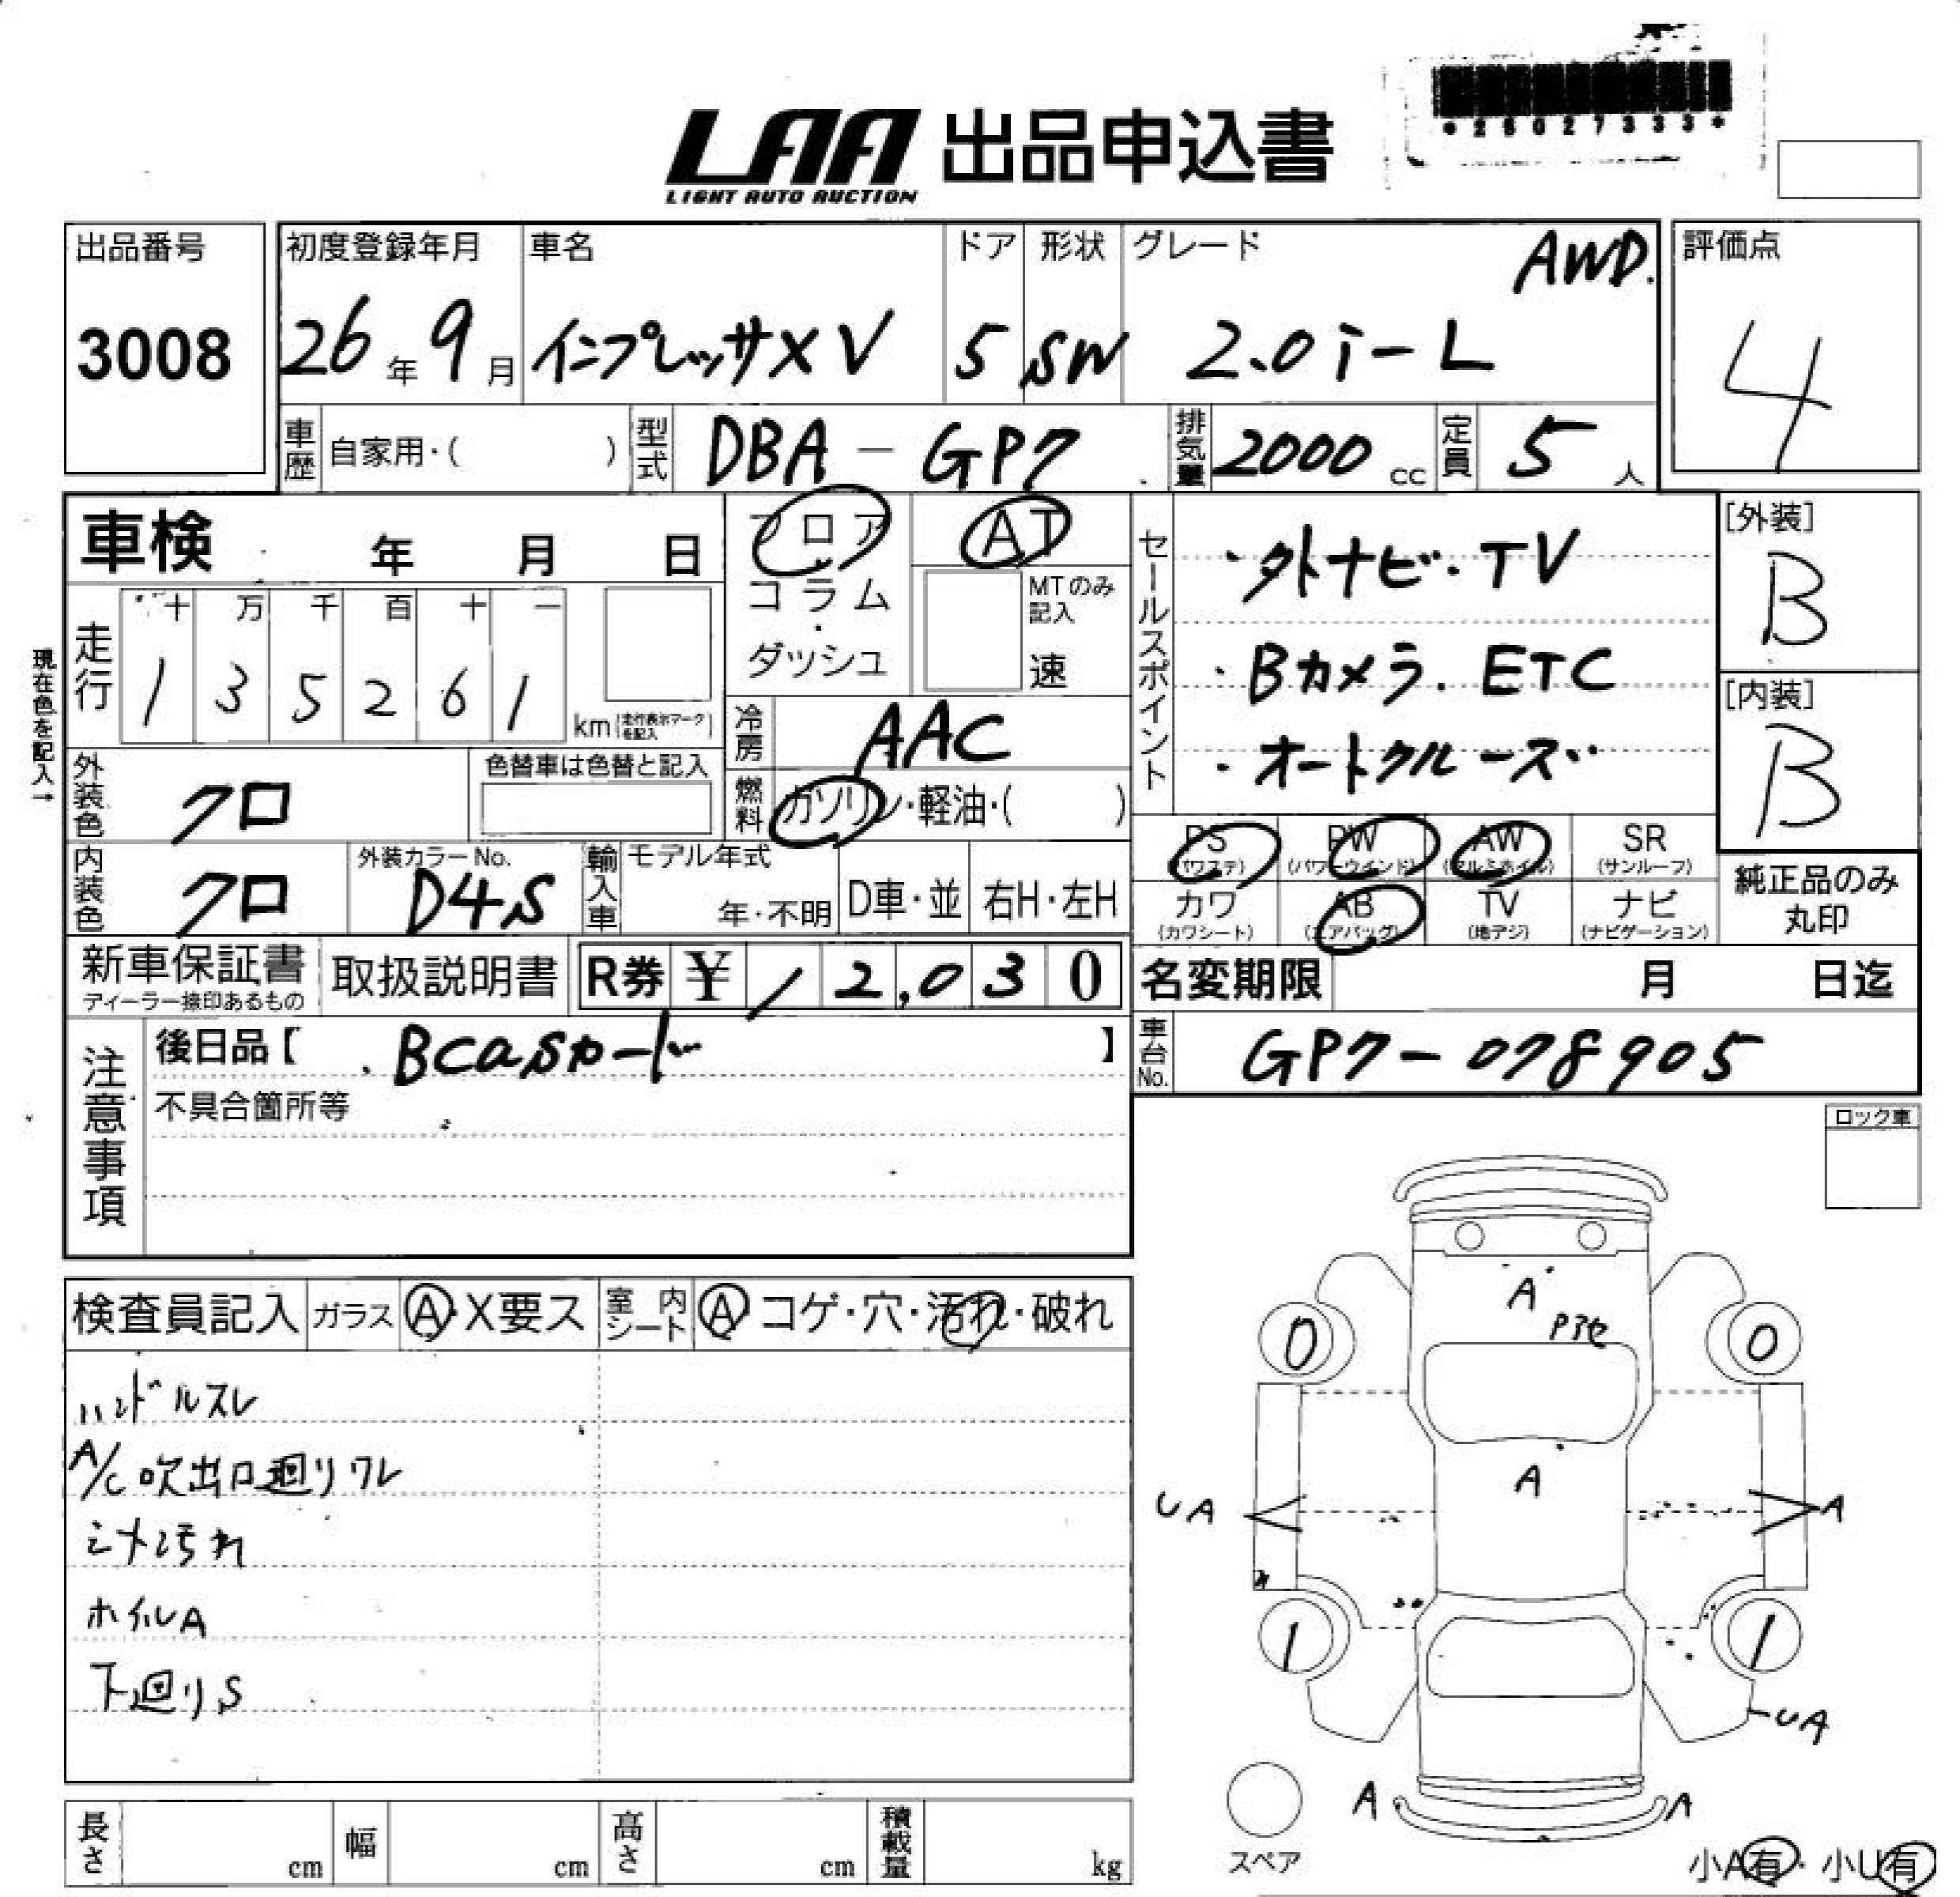 *26027333*
LAA 出品申込書
LIGHT AUTO AUCTION
出品番号
3008
初度登録年月
26年9月
車名
インプレッサXV
ドア
5
形状
SW
グレード
AWD.
2.0i-L
評価点
4
車歴 自家用・( )
型式 DBA-GP7
排気量 2000 cc
定員 5 人
車検 年 月 日
走行
十 万 千 百 十 一
1 3 5 2 6 1
km (走行表示マークを記入)
現在色を記入→
フロア・コラム・ダッシュ
AT
MTのみ記入
速
冷房 AAC
燃料 ガソリン・軽油・( )
セールスポイント
・外ナビ・TV
・Bカメラ. ETC
・オートクルーズ・
[外装]
B
[内装]
B
外装色 クロ
色替車は色替と記入
内装色 クロ
外装カラーNo.
D4S
輸入車
モデル年式
年・不明
D車・並
右H・左H
PS (パワステ)
PW (パワーウインド)
AW (アルミホイル)
SR (サンルーフ)
カワ (カワシート)
AB (エアバッグ)
TV (地デジ)
ナビ (ナビゲーション)
純正品のみ
丸印
新車保証書
ディーラー捺印あるもの
取扱説明書
R券 ¥ / 2,030
名変期限 月 日迄
注意事項
後日品【 .Bcasカード 】
不具合箇所等
車台No. GP7-078905
ロック車
検査員記入
ガラス A・X要ス
室内シート A・コゲ・穴・汚れ・破れ
ハンドルスレ
A/C吹出口廻りワレ
シート汚れ
ホイルA
下廻りS
A
0
0
A
UA
A
1
1
UA
A
A
スペア
小A有・小U有
長さ cm
幅 cm
高さ cm
積載量 kg